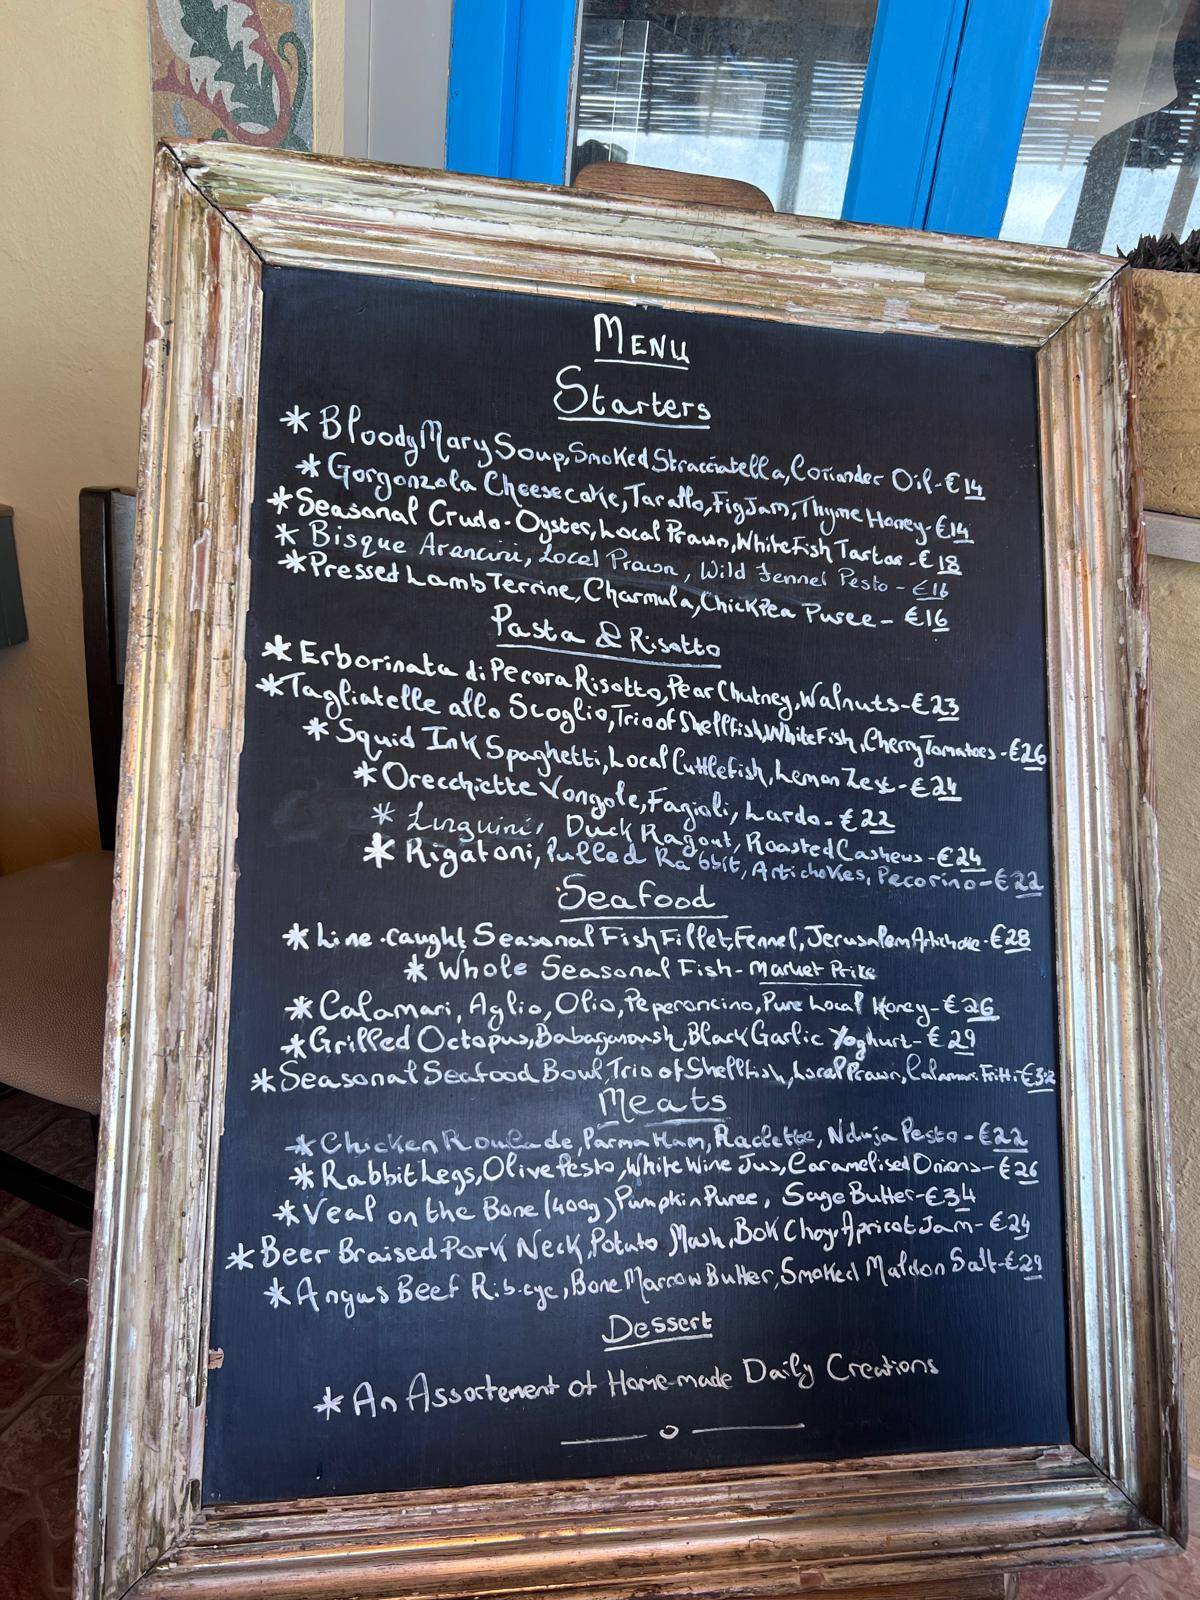 MENU
Starters
* Bloody Mary Soup, Smoked Stracciatella, Coriander Oil - €14
* Gorgonzola Cheesecake, Tarallo, Fig Jam, Thyme Honey - €14
* Seasonal Crudo - Oyster, Local Prawn, White Fish Tartar - €18
* Bisque Arancini, Local Prawn, Wild Fennel Pesto - €16
* Pressed Lamb Terrine, Charmula, Chickpea Puree - €16
Pasta & Risotto
* Erborinata di Pecora Risotto, Pear Chutney, Walnuts - €23
* Tagliatelle allo Scoglio, Trio of Shellfish, White Fish, Cherry Tomatoes - €26
* Squid Ink Spaghetti, Local Cuttlefish, Lemon Zest - €24
* Orecchiette Vongole, Fagioli, Lardo - €22
* Linguini, Duck Ragout, Roasted Cashews - €24
* Rigatoni, Pulled Rabbit, Artichokes, Pecorino - €22
Seafood
* Line-caught Seasonal Fish Fillet, Fennel, Jerusalem Artichoke - €28
* Whole Seasonal Fish - Market Price
* Calamari, Aglio, Olio, Peperoncino, Pure Local Honey - €26
* Grilled Octopus, Babaganoush, Black Garlic Yoghurt - €29
* Seasonal Seafood Bowl, Trio of Shellfish, Local Prawn, Calamari Fritti - €32
Meats
* Chicken Roulade, Parma Ham, Raclette, Nduja Pesto - €22
* Rabbit Legs, Olive Pesto, White Wine Jus, Caramelised Onions - €26
* Veal on the Bone (400g) Pumpkin Puree, Sage Butter - €34
* Beer Braised Pork Neck, Potato Mash, Bok Choy, Apricot Jam - €24
* Angus Beef Rib-eye, Bone Marrow Butter, Smoked Maldon Salt - €29
Dessert
* An Assortement of Home-made Daily Creations